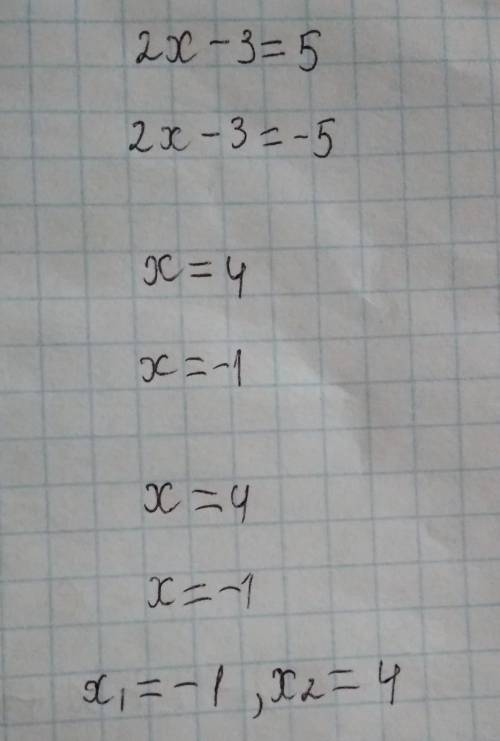 2x - 3 = 5
2x - 3 = -5
x = 4
x = -1
x = 4
x = -1
x₁ = -1 , x₂ = 4